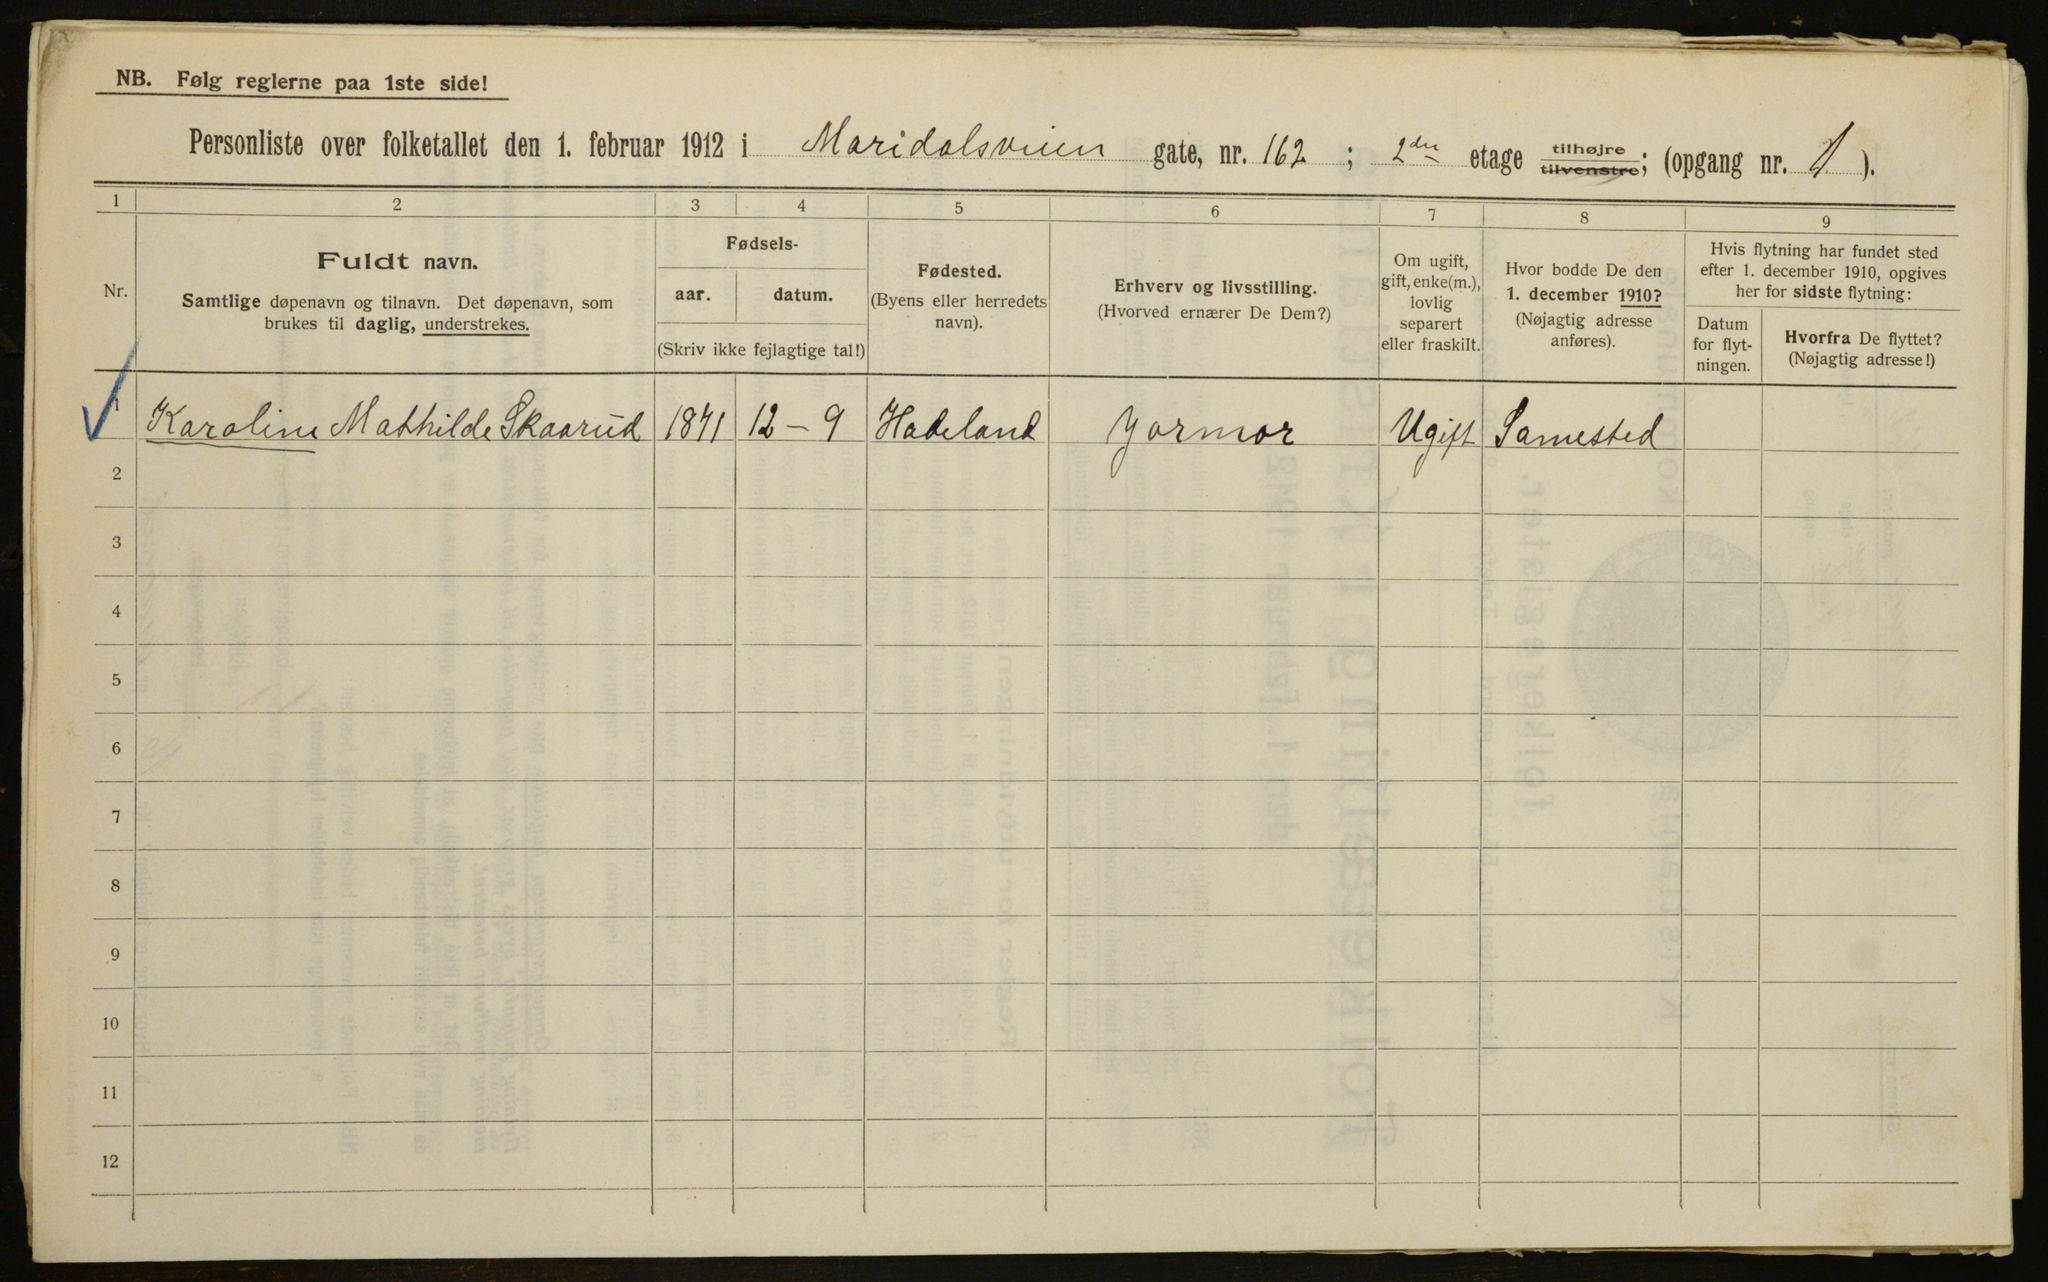 NB. Følg reglerne paa 1ste side!
Personliste over folketallet den 1. februar 1912 i Maridalsveien gate, nr. 162 ; 2den etage tilhøjre tilvenstre; (opgang nr. 1 ).
1 2 3 4 5 6 7 8 9
Nr.
Fuldt navn.
Samtlige døpenavn og tilnavn. Det døpenavn, som
brukes til daglig, understrekes.
Fødsels-
aar. datum.
(Skriv ikke fejlagtige tal!)
Fødested.
(Byens eller herredets
navn).
Erhverv og livsstilling.
(Hvorved ernærer De Dem?)
Om ugift,
gift, enke(m.),
lovlig
separert
eller fraskilt.
Hvor bodde De den
1. december 1910?
(Nøjagtig adresse
anføres).
Hvis flytning har fundet sted
efter 1. december 1910, opgives
her for sidste flytning:
Datum
for flyt-
ningen.
Hvorfra De flyttet?
(Nøjagtig adresse!)
1 Karoline Mathilde Skaarud 1871 12 – 9 Hadeland Jormor Ugift Samested
2
3
4
5
6
7
8
9
10
11
12